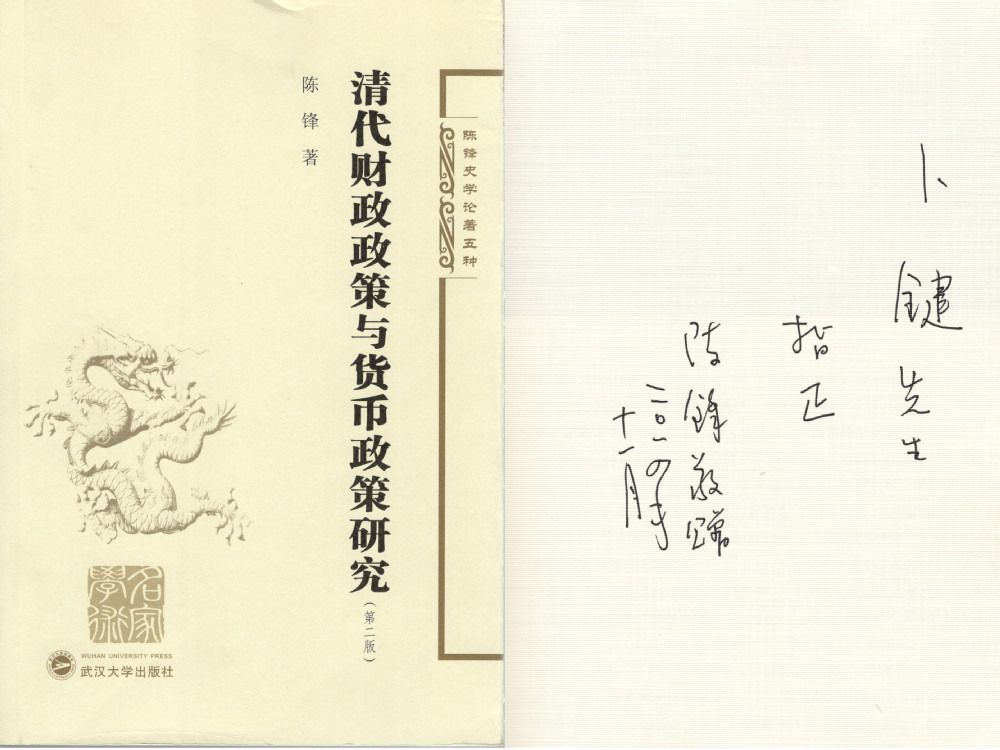 陈锋史学论著五种
清代财政政策与货币政策研究(第二版)
陈锋著
名家
學術
WUHAN UNIVERSITY PRESS
武汉大学出版社
卜键先生
指正
陈锋敬赠
二〇一四年
十一月